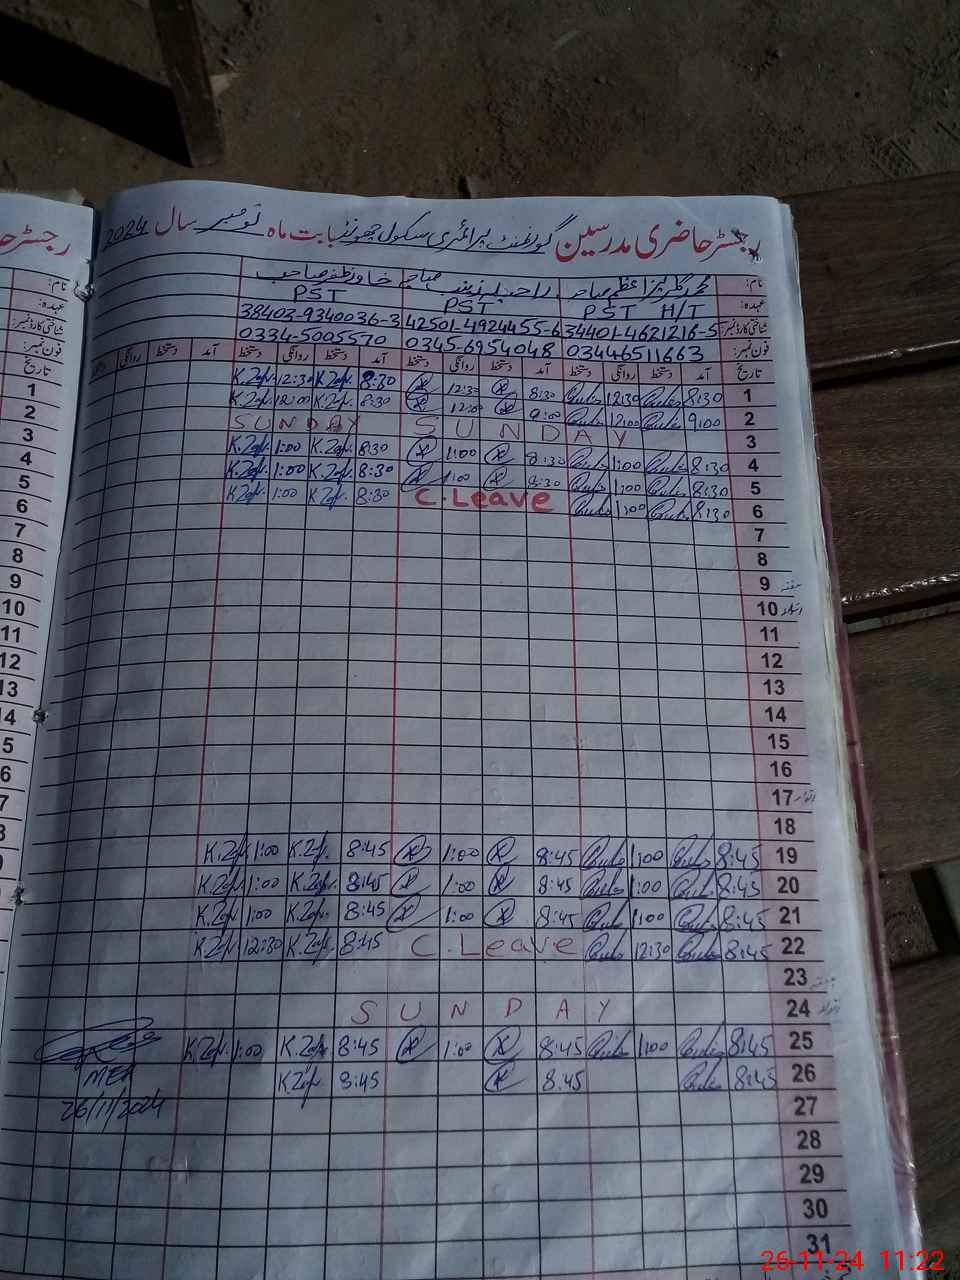 رجسٹر حاضری مدرسین گورنمنٹ پرائمری سکول بابت ماہ نومبر سال 2024
نام: صاحب صاحبہ خاور ظفر صاحب
عہدہ: PST H/T PST PST
شناختی کارڈ نمبر: 34401-4621216-5 42501-4924455-6 38403-9340036-3
فون نمبر: 03446511663 0345-6954048 0334-5005570
تاریخ آمد دستخط روانگی دستخط آمد دستخط روانگی دستخط آمد دستخط روانگی دستخط آمد دستخط روانگی
1 8:30 12:30 8:30 12:30 8:30 K.Zafr 12:30 K.Zafr
2 9:00 12:00 9:00 12:00 8:30 K.Zafr 12:00 K.Zafr
3 SUNDAY SUNDAY
4 8:30 1:00 8:30 1:00 8:30 K.Zafr 1:00 K.Zafr
5 8:30 1:00 8:30 1:00 8:30 K.Zafr 1:00 K.Zafr
6 8:30 1:00 C.Leave 8:30 K.Zafr 1:00 K.Zafr
7
8
9 ہفتہ
10 اتوار
11
12
13
14
15
16
17 اتوار
18
19 8:45 1:00 8:45 1:00 8:45 K.Zafr 1:00 K.Zafr
20 8:45 1:00 8:45 1:00 8:45 K.Zafr 1:00 K.Zafr
21 8:45 1:00 8:45 1:00 8:45 K.Zafr 1:00 K.Zafr
22 8:45 12:30 C.Leave 8:45 K.Zafr 12:30 K.Zafr
23 ہفتہ
24 اتوار SUNDAY
25 8:45 1:00 8:45 1:00 8:45 K.Zafr 1:00 K.Zafr
26 8:45 8:45 8:45 K.Zafr
MEA
27
26/11/2024
28
29
30
31
26-11-24 11:22